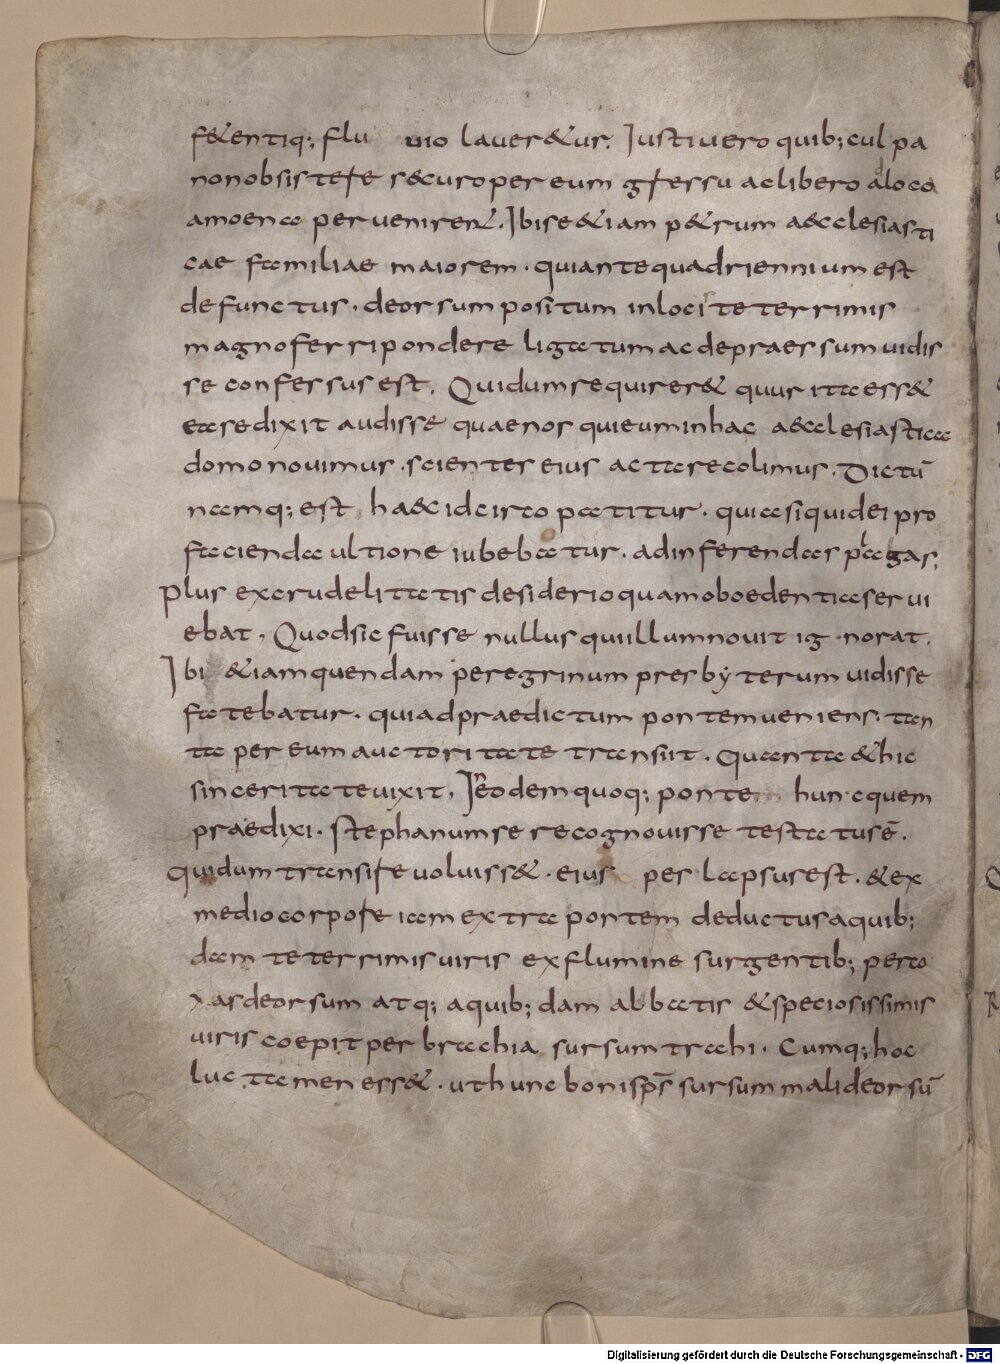 f&entiq; flu uio lauer&ur. Iusti uero quib; culpa
non obsistere securo per eum gressu ac libero a loca
amoena peruenirent. Ibi se &iam p&rum aecclesiasti
cae familiae maiorem . qui ante quadriennium est
defunctus . deorsum positum in locis teterrimis
magno ferri pondere ligatum ac depraessum uidis
se confessus est. Qui dum requirer& quur ita ess&
ea se dixit audisse quae nos qui eum in hac aecclesiastica
domo nouimus . scientes eius acta recolimus. Dictū
namq; est haec idcirco patitur . quia si quid ei pro
facienda ultione iubebatur . ad inferendas plagas;
plus ex crudelitatis desiderio quam oboedentia serui
ebat . Quod sic fuisse nullus qui illum nouit ignorat.
Ibi &iam quendam peregrinum presbyterum uidisse
fatebatur . qui ad praedictum pontem ueniens . tan
ta per eum auctoritate transiit . Quanta & hic
sinceritate uixit. In eodem quoq; ponte hunc quem
praedixi . stephanum se recognouisse testatus ē.
qui dum transire uoluiss& . eius per lapsus est . & ex
medio corpore iam extra pontem deductus a quib;
dam teterrimis uiris ex flumine surgentib; per co
xas deorsum atq; a quib;dam albatis & speciosissimis
uiris coepit per brachia sursum trachi . Cumq; hoc
luctamen ess& . ut hunc boni sps̄ sursum mali deorsū
Digitalisierung gefördert durch die Deutsche Forschungsgemeinschaft - DFG